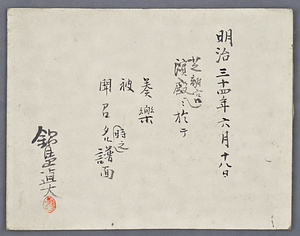 明治三十四年六月十八日
芝離宮
濱殿ニ於テ
奏樂
被
聞召タ
時之
譜面
鍋島直大